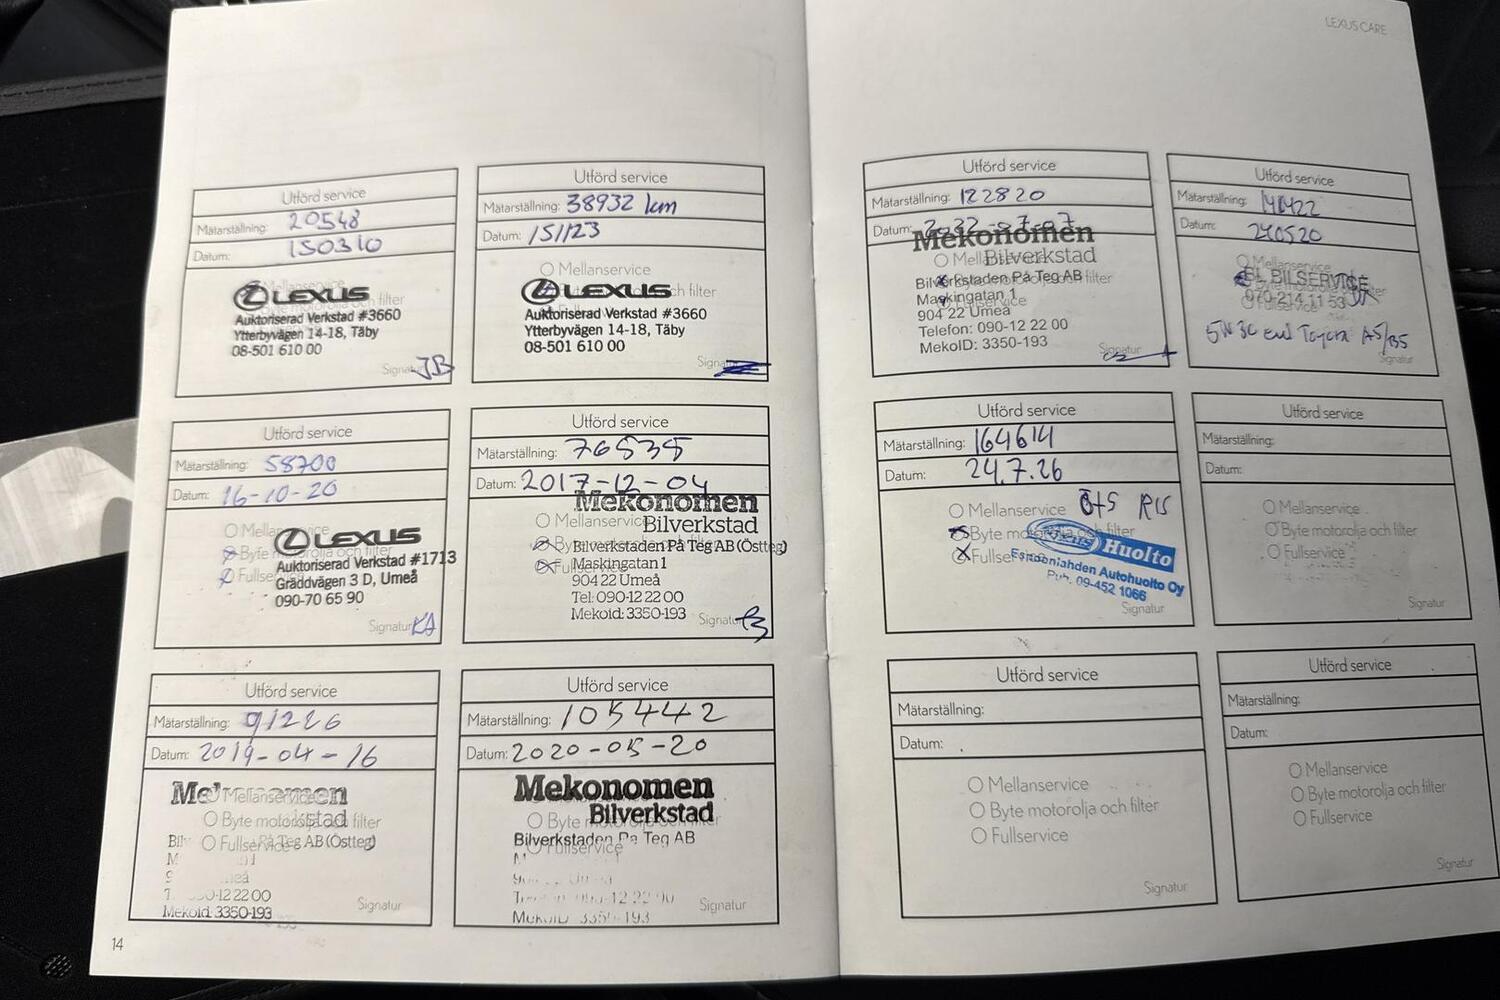 LEXUS CARE
Utförd service
Mätarställning: 20548
Datum: 150310
LEXUS
Auktoriserad Verkstad #3660
Ytterbyvägen 14-18, Täby
08-501 610 00
Signatur JB
Utförd service
Mätarställning: 38932 km
Datum: 151123
Mellanservice
LEXUS
Auktoriserad Verkstad #3660
Ytterbyvägen 14-18, Täby
08-501 610 00
Utförd service
Mätarställning: 58700
Datum: 16-10-20
Mellanservice
Byte motorolja och filter
Fullservice
LEXUS
Auktoriserad Verkstad #1713
Gräddvägen 3 D, Umeå
090-70 65 90
Signatur KA
Utförd service
Mätarställning: 76535
Datum: 2017-12-04
Mekonomen
Mellanservice
Bilverkstad
Bilverkstaden På Teg AB (Östteg)
Maskingatan 1
904 22 Umeå
Tel: 090-12 22 00
Mekoid: 3350-193
Signatur
Utförd service
Mätarställning: 91226
Datum: 2019-04-16
Mekonomen
Mellanservice
Byte motorolja och filter
Fullservice
På Teg AB (Östteg)
Mekoid: 3350-193
Signatur
Utförd service
Mätarställning: 105442
Datum: 2020-05-20
Mekonomen
Bilverkstad
Byte motorolja och filter
Bilverkstaden På Teg AB
Fullservice
Signatur
14
Utförd service
Mätarställning: 122820
Datum: 2022-07-07
Mekonomen
Bilverkstad
Bilverkstaden På Teg AB
Maskingatan 1
904 22 Umeå
Telefon: 090-12 22 00
MekoID: 3350-193
Signatur
Utförd service
Mätarställning:
Datum: 240520
Mellanservice
BILSERVICE
070-214 11 53
Fullservice
Toyota A5/B5
Signatur
Utförd service
Mätarställning: 164614
Datum: 24.7.26
Mellanservice
Byte motorolja och filter
Fullservice
Huolto
Espoonlahden Autohuolto Oy
Puh. 09-452 1066
Signatur
Utförd service
Mätarställning:
Datum:
Mellanservice
Byte motorolja och filter
Fullservice
Signatur
Utförd service
Mätarställning:
Datum:
Mellanservice
Byte motorolja och filter
Fullservice
Signatur
Utförd service
Mätarställning:
Datum:
Mellanservice
Byte motorolja och filter
Fullservice
Signatur